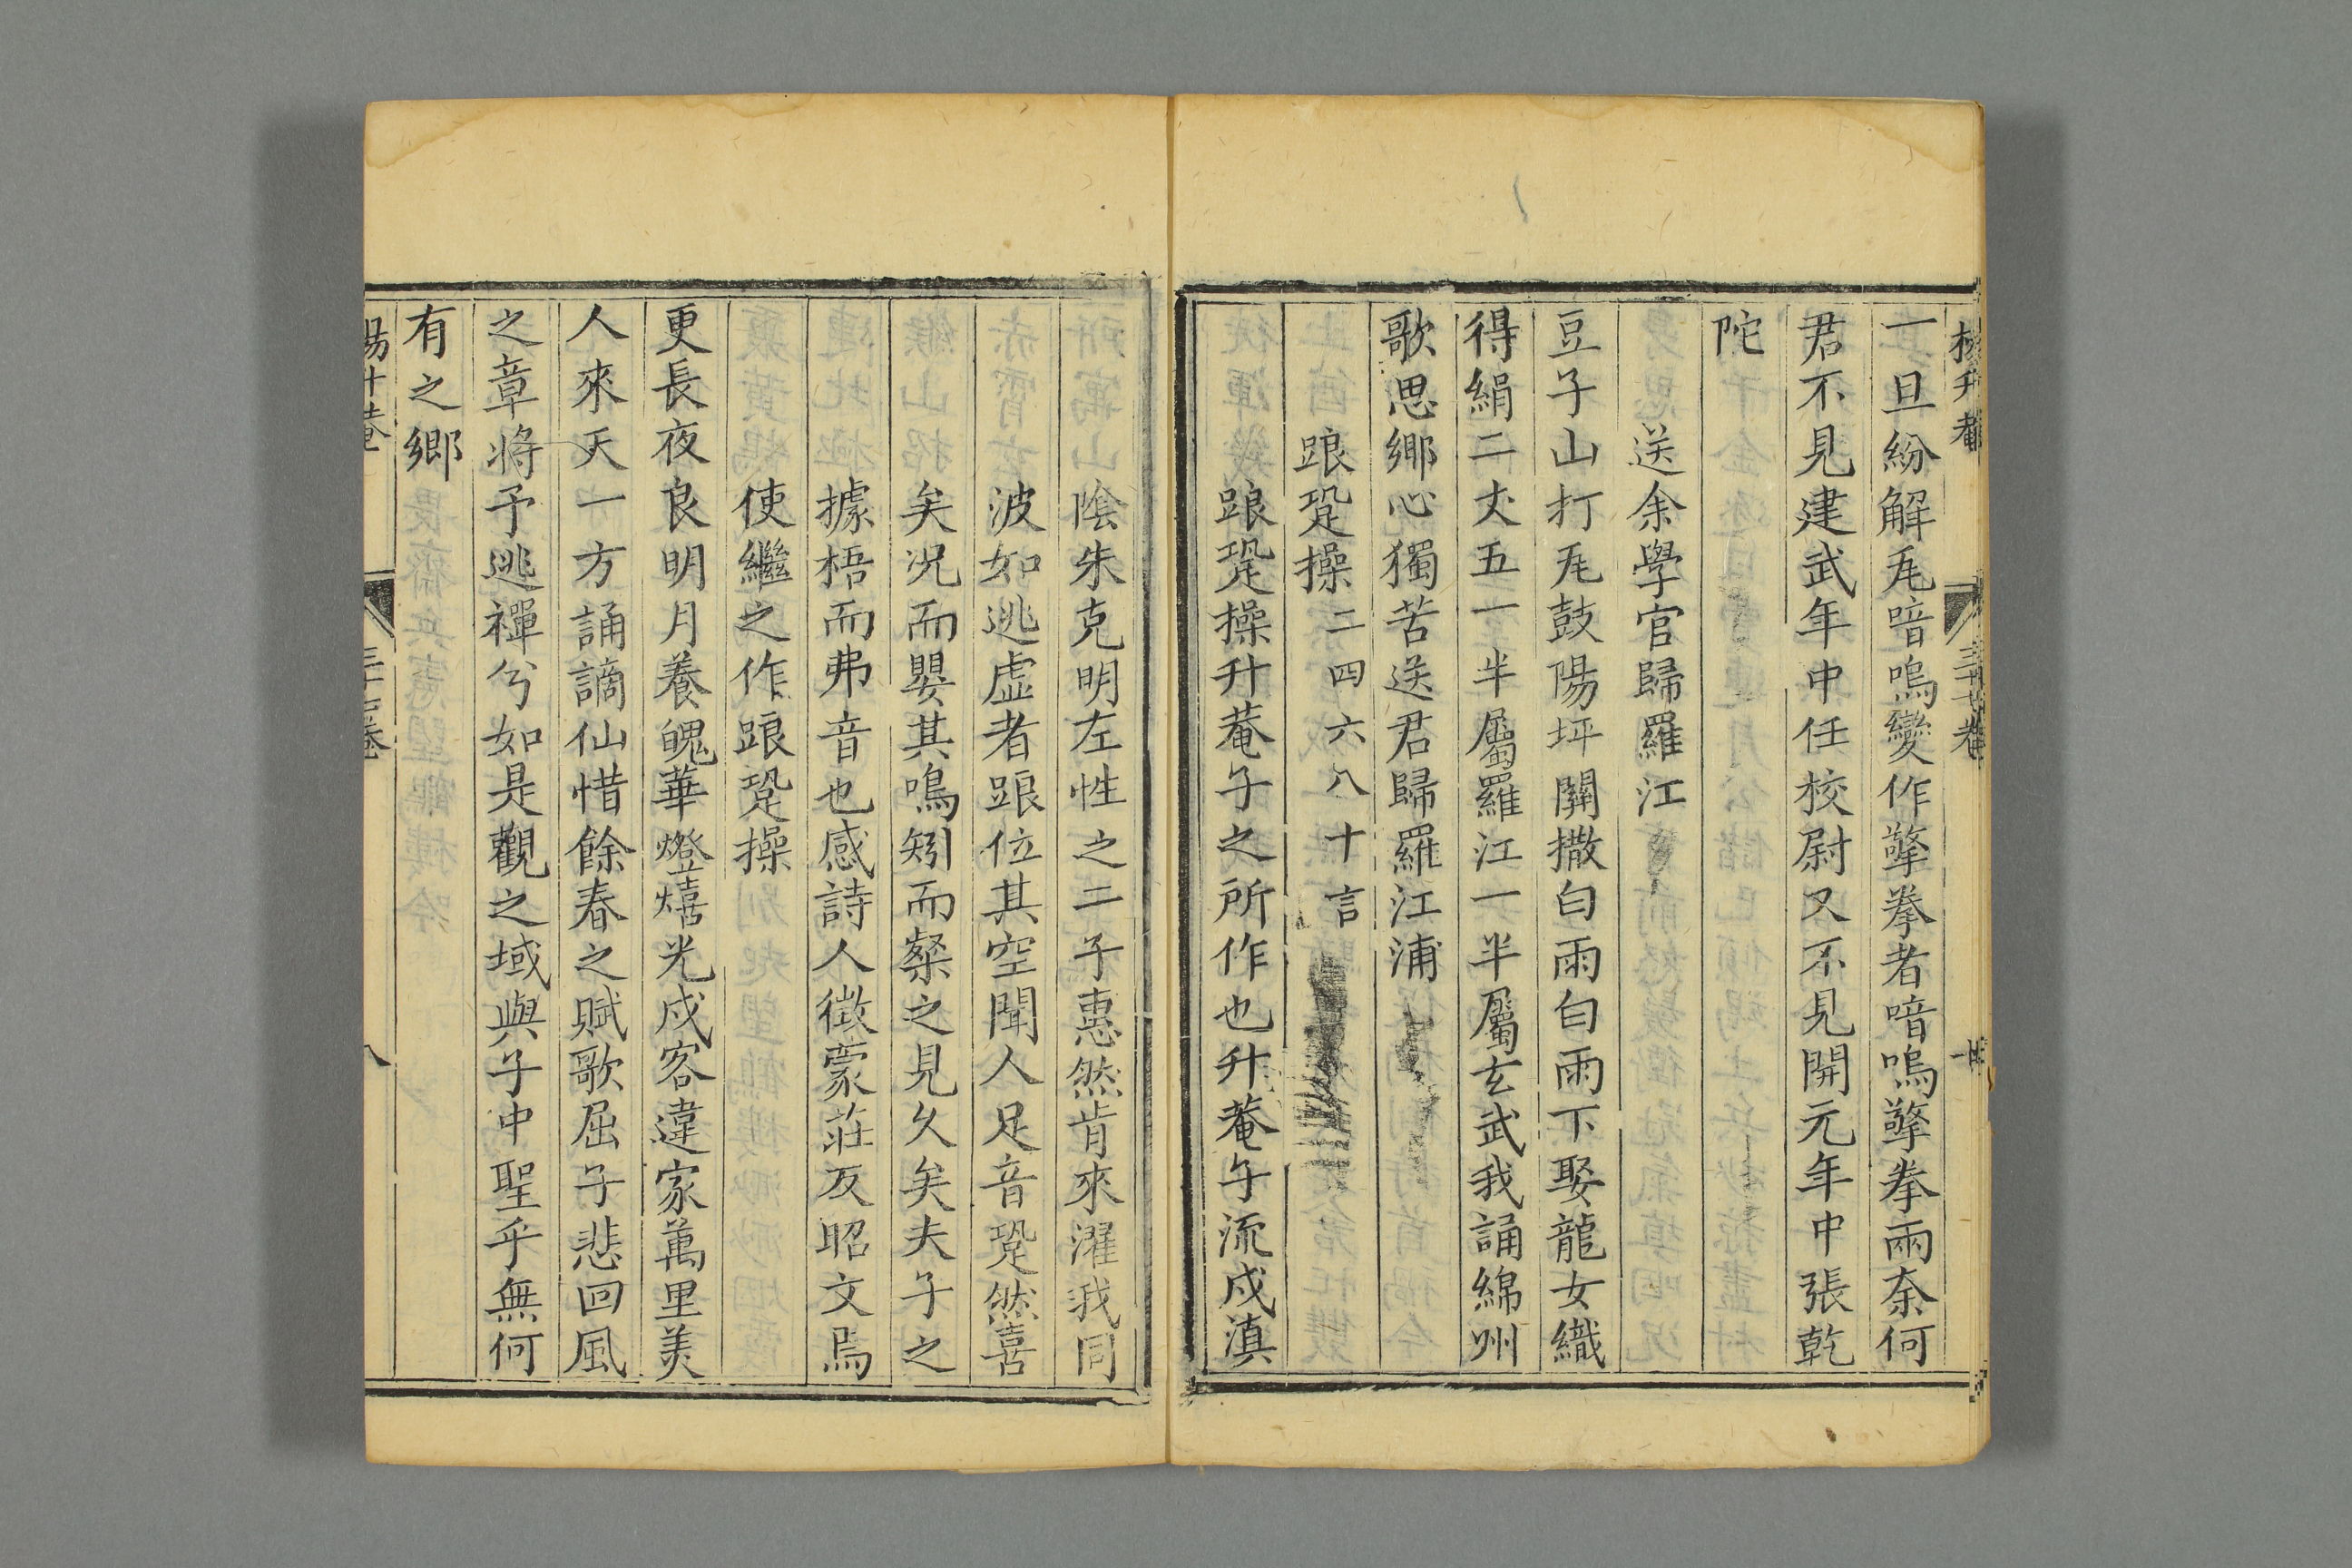 一旦紛解兎喑嗚變作擎拳者喑嗚擎拳兩奈何
君不見建武年中任校尉又不見開元年中張乾
陀
送余學官歸羅江
豆子山打瓦鼓陽坪關撒白雨白雨下娶龍女織
得絹二丈五一半屬羅江一半屬玄武我誦綿州
歌思鄉心獨苦送君歸羅江浦
踉跫操二四六八十言
踉跫操升菴子之所作也升菴子流戍滇
陰朱克明左性之二子惠然肯來濯我同
波如逃虛者踉位其空聞人足音跫然喜
矣况而嬰其鳴矧而粲之見久矣夫子之
據梧而弗音也感詩人徵蒙莊友昭文爲
使繼之作踉跫操
更長夜良明月養魄華燈熺光戍客違家萬里美
人來天一方誦謫仙惜餘春之賦歌屈子悲回風
之章將予逃禪兮如是觀之域與子中聖乎無何
有之鄉
八